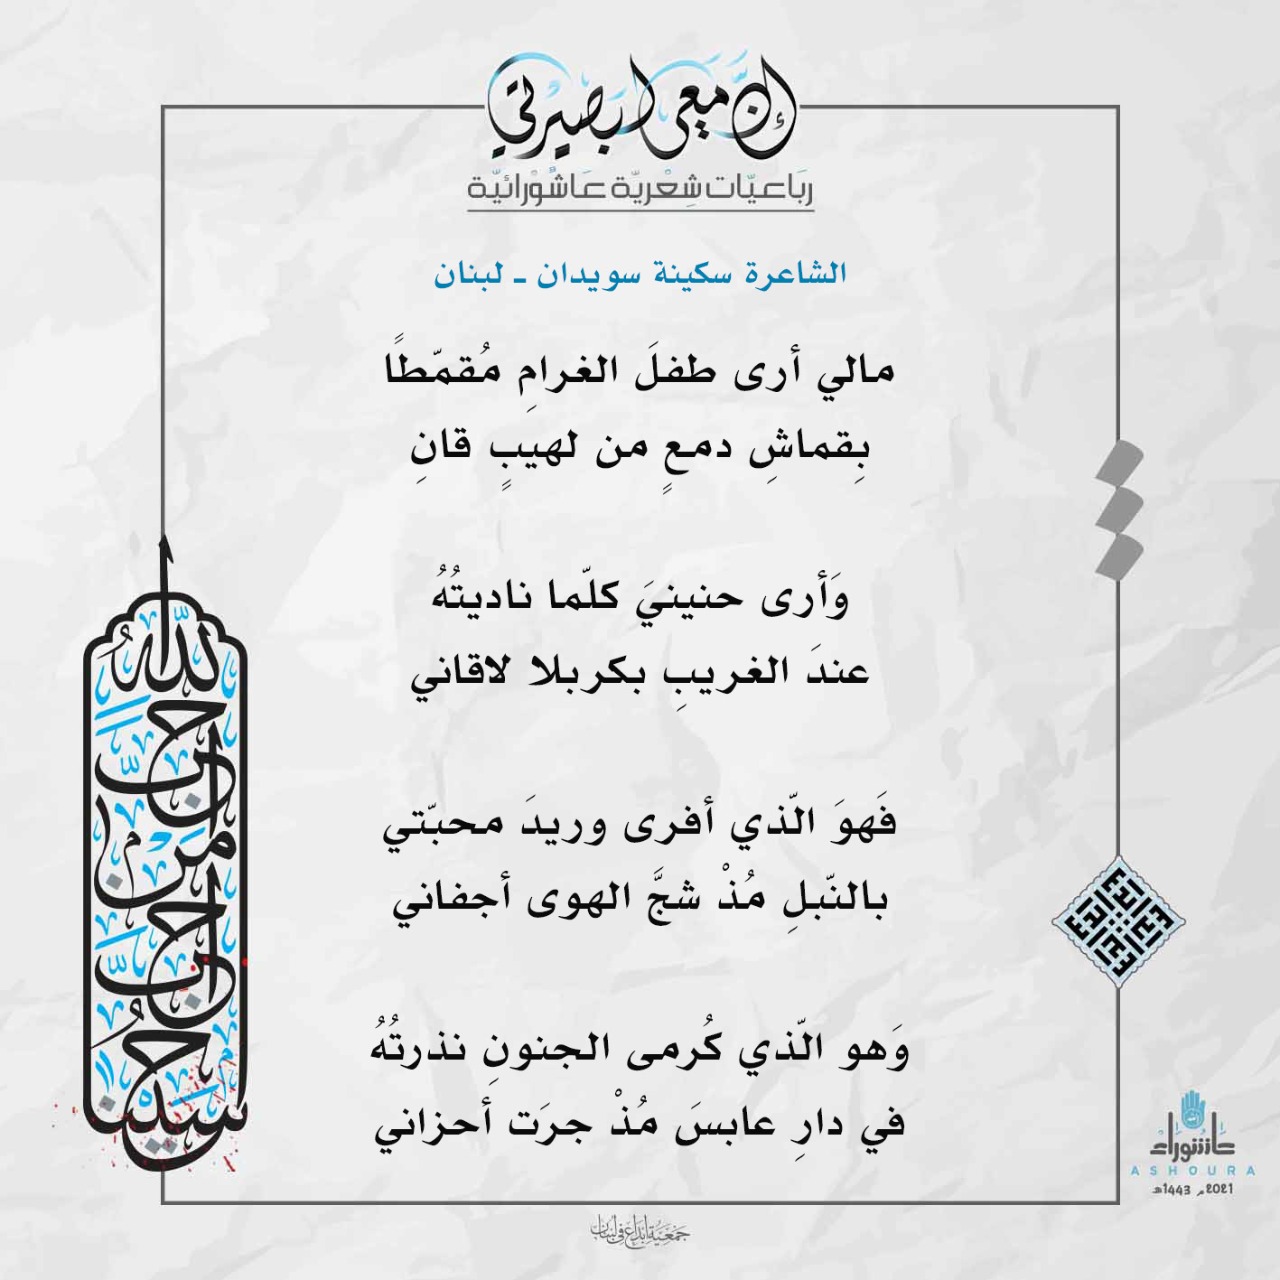 إنَّ معي لبصيرتي
رباعيّات شِعْريّة عَاشُوْرائيّة
الشاعرة سكينة سويدان ـ لبنان
مالي أرى طفلَ الغرامِ مُقمّطاً
بِقماشِ دمعٍ من لهيبٍ قانِ
وَأرى حنينيَ كلّما ناديتُهُ
عندَ الغريبِ بكربلا لاقاني
فَهوَ الّذي أفرى وريدَ محبّتي
بالنّبلِ مُذْ شجَّ الهوى أجفاني
وَهو الّذي كُرمى الجنونِ نذرتُهُ
في دارِ عابسَ مُذْ جرَت أحزاني
أحبَّ اللهُ من أحبَّ حسينا
عاشوراء
ASHOURA
2021م 1443هـ
جمعية إبداع في لبنان